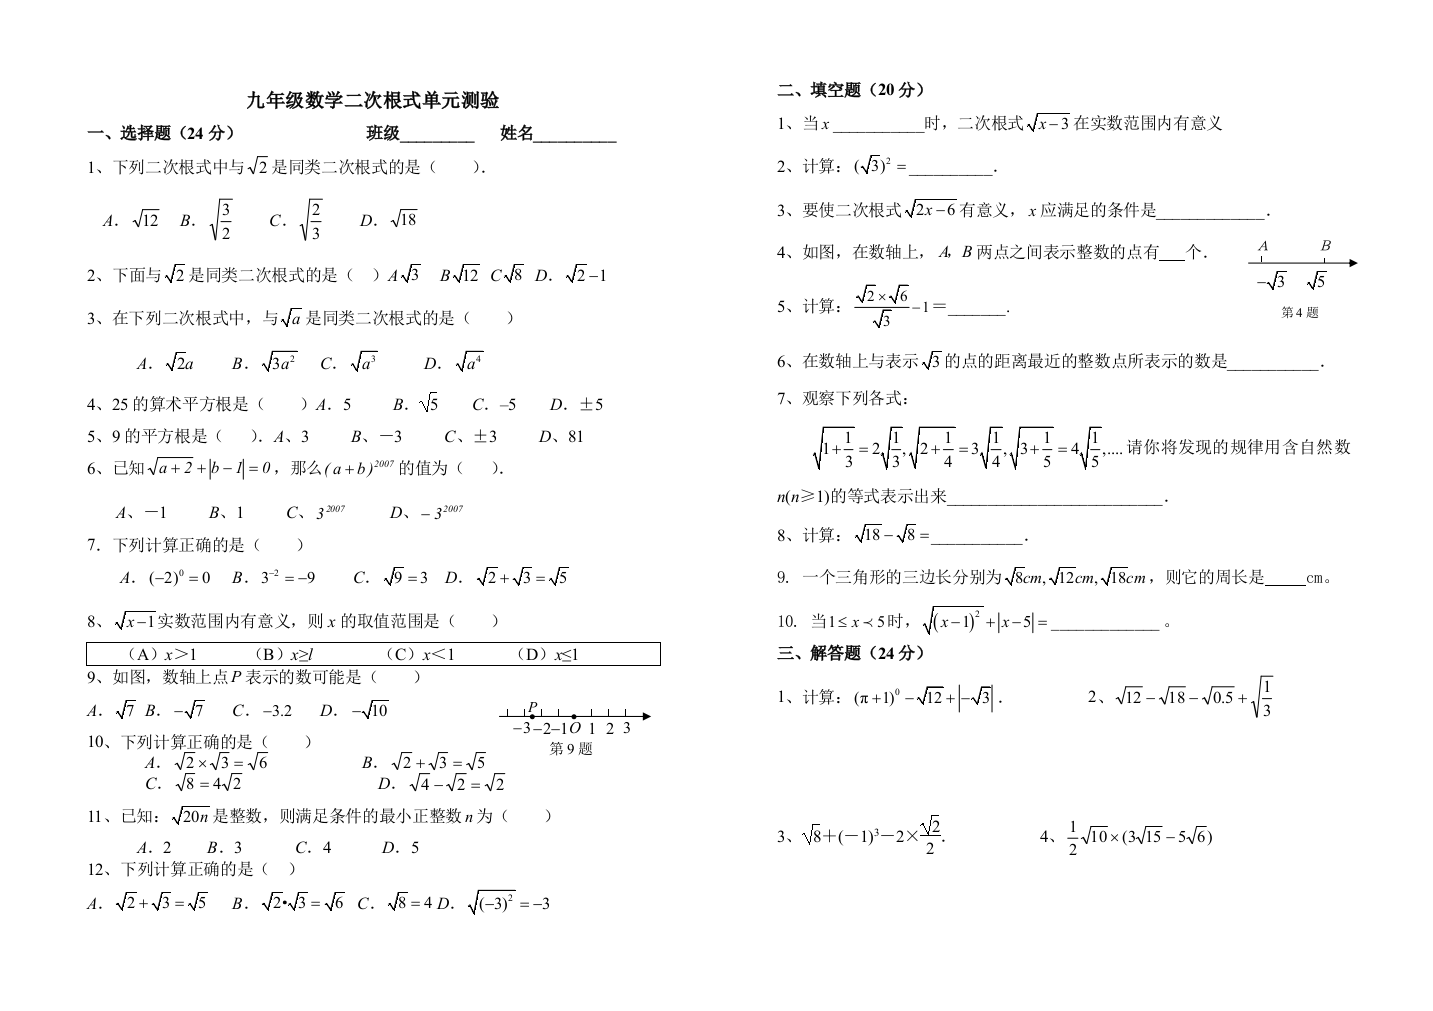 九年级数学二次根式单元测验
一、选择题（24 分） 班级_________ 姓名__________
1、下列二次根式中与√2 是同类二次根式的是（ ）.
A．√12 B．√(3/2) C．√(2/3) D．√18
2、下面与√2 是同类二次根式的是（ ）A √3 B √12 C √8 D．√2−1
3、在下列二次根式中，与√a 是同类二次根式的是（ ）
A．√2a B．√3a² C．√a³ D．√a⁴
4、25 的算术平方根是（ ）A．5 B．√5 C．–5 D．±5
5、9 的平方根是（ ）. A、3 B、－3 C、±3 D、81
6、已知√(a+2)+|b−1|=0，那么(a+b)²⁰⁰⁷的值为（ ）.
A、－1 B、1 C、3²⁰⁰⁷ D、−3²⁰⁰⁷
7．下列计算正确的是（ ）
A．(−2)⁰=0 B．3⁻²=−9 C．√9=3 D．√2+√3=√5
8、√(x−1)实数范围内有意义，则 x 的取值范围是（ ）
（A）x＞1 （B）x≥l （C）x＜1 （D）x≤1
9、如图，数轴上点P 表示的数可能是（ ）
A．√7 B．−√7 C．−3.2 D．−√10
P
−3 −2 −1 O 1 2 3
第 9 题
10、下列计算正确的是（ ）
A．√2×√3=√6 B．√2+√3=√5
C．√8=4√2 D．√4−√2=√2
11、已知：√20n 是整数，则满足条件的最小正整数 n 为（ ）
A．2 B．3 C．4 D．5
12、下列计算正确的是（ ）
A．√2+√3=√5 B．√2•√3=√6 C．√8=4 D．√((−3)²)=−3
二、填空题（20 分）
1、当 x ___________时，二次根式√(x−3) 在实数范围内有意义
2、计算：(√3)²=__________．
3、要使二次根式√(2x−6) 有意义，x 应满足的条件是_____________．
4、如图，在数轴上，A，B 两点之间表示整数的点有___个．
A B
−√3 √5
第 4 题
5、计算：(√2×√6)/√3−1＝_______.
6、在数轴上与表示√3 的点的距离最近的整数点所表示的数是___________．
7、观察下列各式：
√(1+1/3)=2√(1/3),√(2+1/4)=3√(1/4),√(3+1/5)=4√(1/5),.... 请你将发现的规律用含自然数
n(n≥1)的等式表示出来__________________________．
8、计算：√18−√8=___________．
9. 一个三角形的三边长分别为√8cm,√12cm,√18cm，则它的周长是_____cm。
10. 当1≤x≺5时，√((x−1)²)+|x−5|=_____________ 。
三、解答题（24 分）
1、计算：(π+1)⁰−√12+|−√3|． 2、√12−√18−√0.5+√(1/3)
3、√8＋(－1)³－2×√2/2． 4、1/2√10×(3√15−5√6)